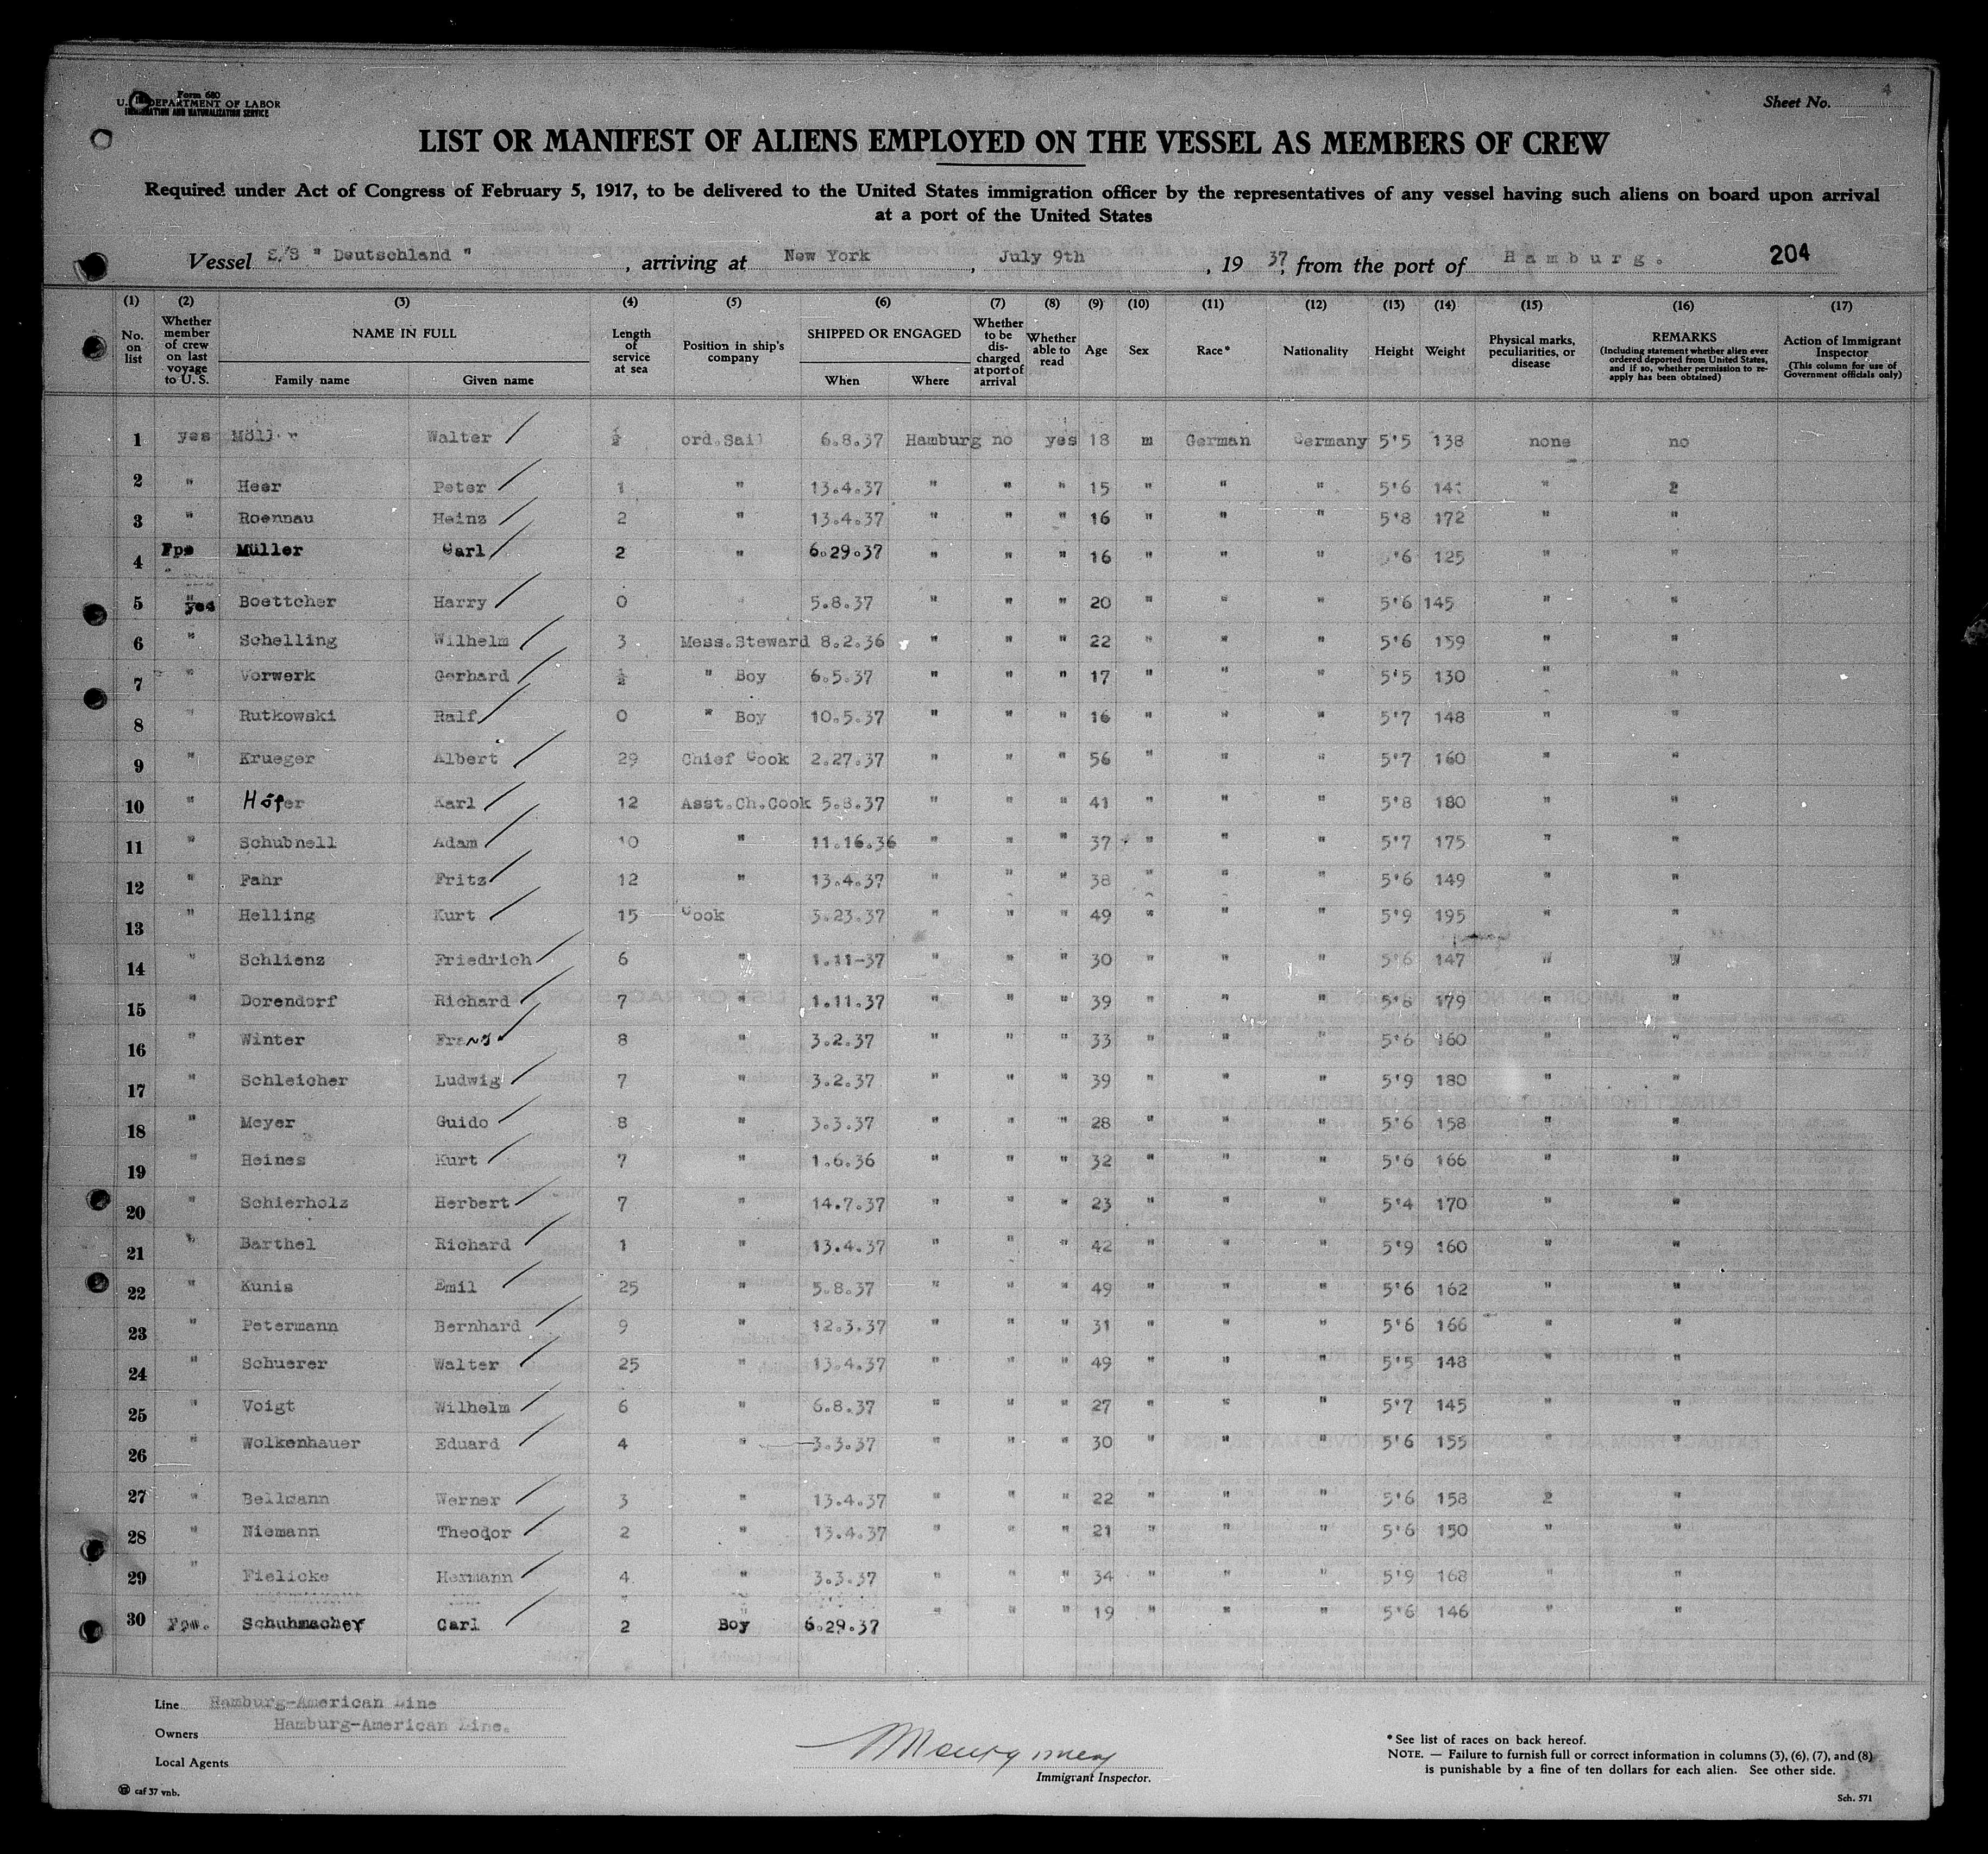 Form 680
U. S. DEPARTMENT OF LABOR
IMMIGRATION AND NATURALIZATION SERVICE
Sheet No. 4
LIST OR MANIFEST OF ALIENS EMPLOYED ON THE VESSEL AS MEMBERS OF CREW
Required under Act of Congress of February 5, 1917, to be delivered to the United States immigration officer by the representatives of any vessel having such aliens on board upon arrival
at a port of the United States
Vessel S/S " Deutschland " , arriving at New York , July 9th , 19 37, from the port of Hamburg. 204
(1) (2) (3) (4) (5) (6) (7) (8) (9) (10) (11) (12) (13) (14) (15) (16) (17)
No. on list Whether member of crew on last voyage to U. S. NAME IN FULL Family name Given name Length of service at sea Position in ship's company SHIPPED OR ENGAGED When Where Whether to be discharged at port of arrival Whether able to read Age Sex Race* Nationality Height Weight Physical marks, peculiarities, or disease REMARKS (Including statement whether alien ever ordered deported from United States, and if so, whether permission to re-apply has been obtained) Action of Immigrant Inspector (This column for use of Government officials only)
1 yes Möller Walter ½ ord.Sail 6.8.37 Hamburg no yes 18 m German Germany 5'5 138 none no
2 " Heer Peter 1 " 13.4.37 " " " 15 " " " 5'6 141 " 2
3 " Roennau Heinz 2 " 13.4.37 " " " 16 " " " 5'8 172 " "
4 Fps Müller Carl 2 " 6.29.37 " " " 16 " " " 5'6 125 " "
5 yes Boettcher Harry 0 " 5.8.37 " " " 20 " " " 5'6 145 " "
6 " Schelling Wilhelm 3 Mess.Steward 8.2.36 " " " 22 " " " 5'6 159 " "
7 " Vorwerk Gerhard ½ " Boy 6.5.37 " " " 17 " " " 5'5 130 " "
8 " Rutkowski Ralf 0 " Boy 10.5.37 " " " 16 " " " 5'7 148 " "
9 " Krueger Albert 29 Chief Cook 2.27.37 " " " 56 " " " 5'7 160 " "
10 " Höfer Karl 12 Asst.Ch.Cook 5.8.37 " " " 41 " " " 5'8 180 " "
11 " Schubnell Adam 10 " 11.16.36 " " " 37 " " " 5'7 175 " "
12 " Pahr Fritz 12 " 13.4.37 " " " 38 " " " 5'6 149 " "
13 " Helling Kurt 15 Cook 3.23.37 " " " 49 " " " 5'9 195 " "
14 " Schlienz Friedrich 6 " 1.11-37 " " " 30 " " " 5'6 147 " "
15 " Dorendorf Richard 7 " 1.11.37 " " " 39 " " " 5'8 179 " "
16 " Winter Franz 8 " 3.2.37 " " " 33 " " " 5'6 160 " "
17 " Schleicher Ludwig 7 " 3.2.37 " " " 39 " " " 5'9 180 " "
18 " Meyer Guido 8 " 3.3.37 " " " 28 " " " 5'6 158 " "
19 " Heines Kurt 7 " 1.6.36 " " " 32 " " " 5'6 166 " "
20 " Schierholz Herbert 7 " 14.7.37 " " " 23 " " " 5'4 170 " "
21 " Barthel Richard 1 " 13.4.37 " " " 42 " " " 5'9 160 " "
22 " Kunis Emil 25 " 5.8.37 " " " 49 " " " 5'6 162 " "
23 " Petermann Bernhard 9 " 12.3.37 " " " 31 " " " 5'6 166 " "
24 " Schuerer Walter 25 " 13.4.37 " " " 49 " " " 5'5 148 " "
25 " Voigt Wilhelm 6 " 6.8.37 " " " 27 " " " 5'7 145 " "
26 " Wolkenhauer Eduard 4 " 3.3.37 " " " 30 " " " 5'6 155 " "
27 " Bellmann Werner 3 " 13.4.37 " " " 22 " " " 5'6 158 2 "
28 " Niemann Theodor 2 " 13.4.37 " " " 21 " " " 5'6 150 " "
29 " Fielicke Hermann 4 " 3.3.37 " " " 34 " " " 5'9 168 " "
30 Fpw. Schuhmacher Carl 2 Boy 6.29.37 " " " 19 " " " 5'6 146 " "
Line Hamburg-American Line
Owners Hamburg-American Line.
Local Agents
Montgomery
Immigrant Inspector.
* See list of races on back hereof.
NOTE. — Failure to furnish full or correct information in columns (3), (6), (7), and (8)
is punishable by a fine of ten dollars for each alien. See other side.
caf 37 vnb.
Sch. 571